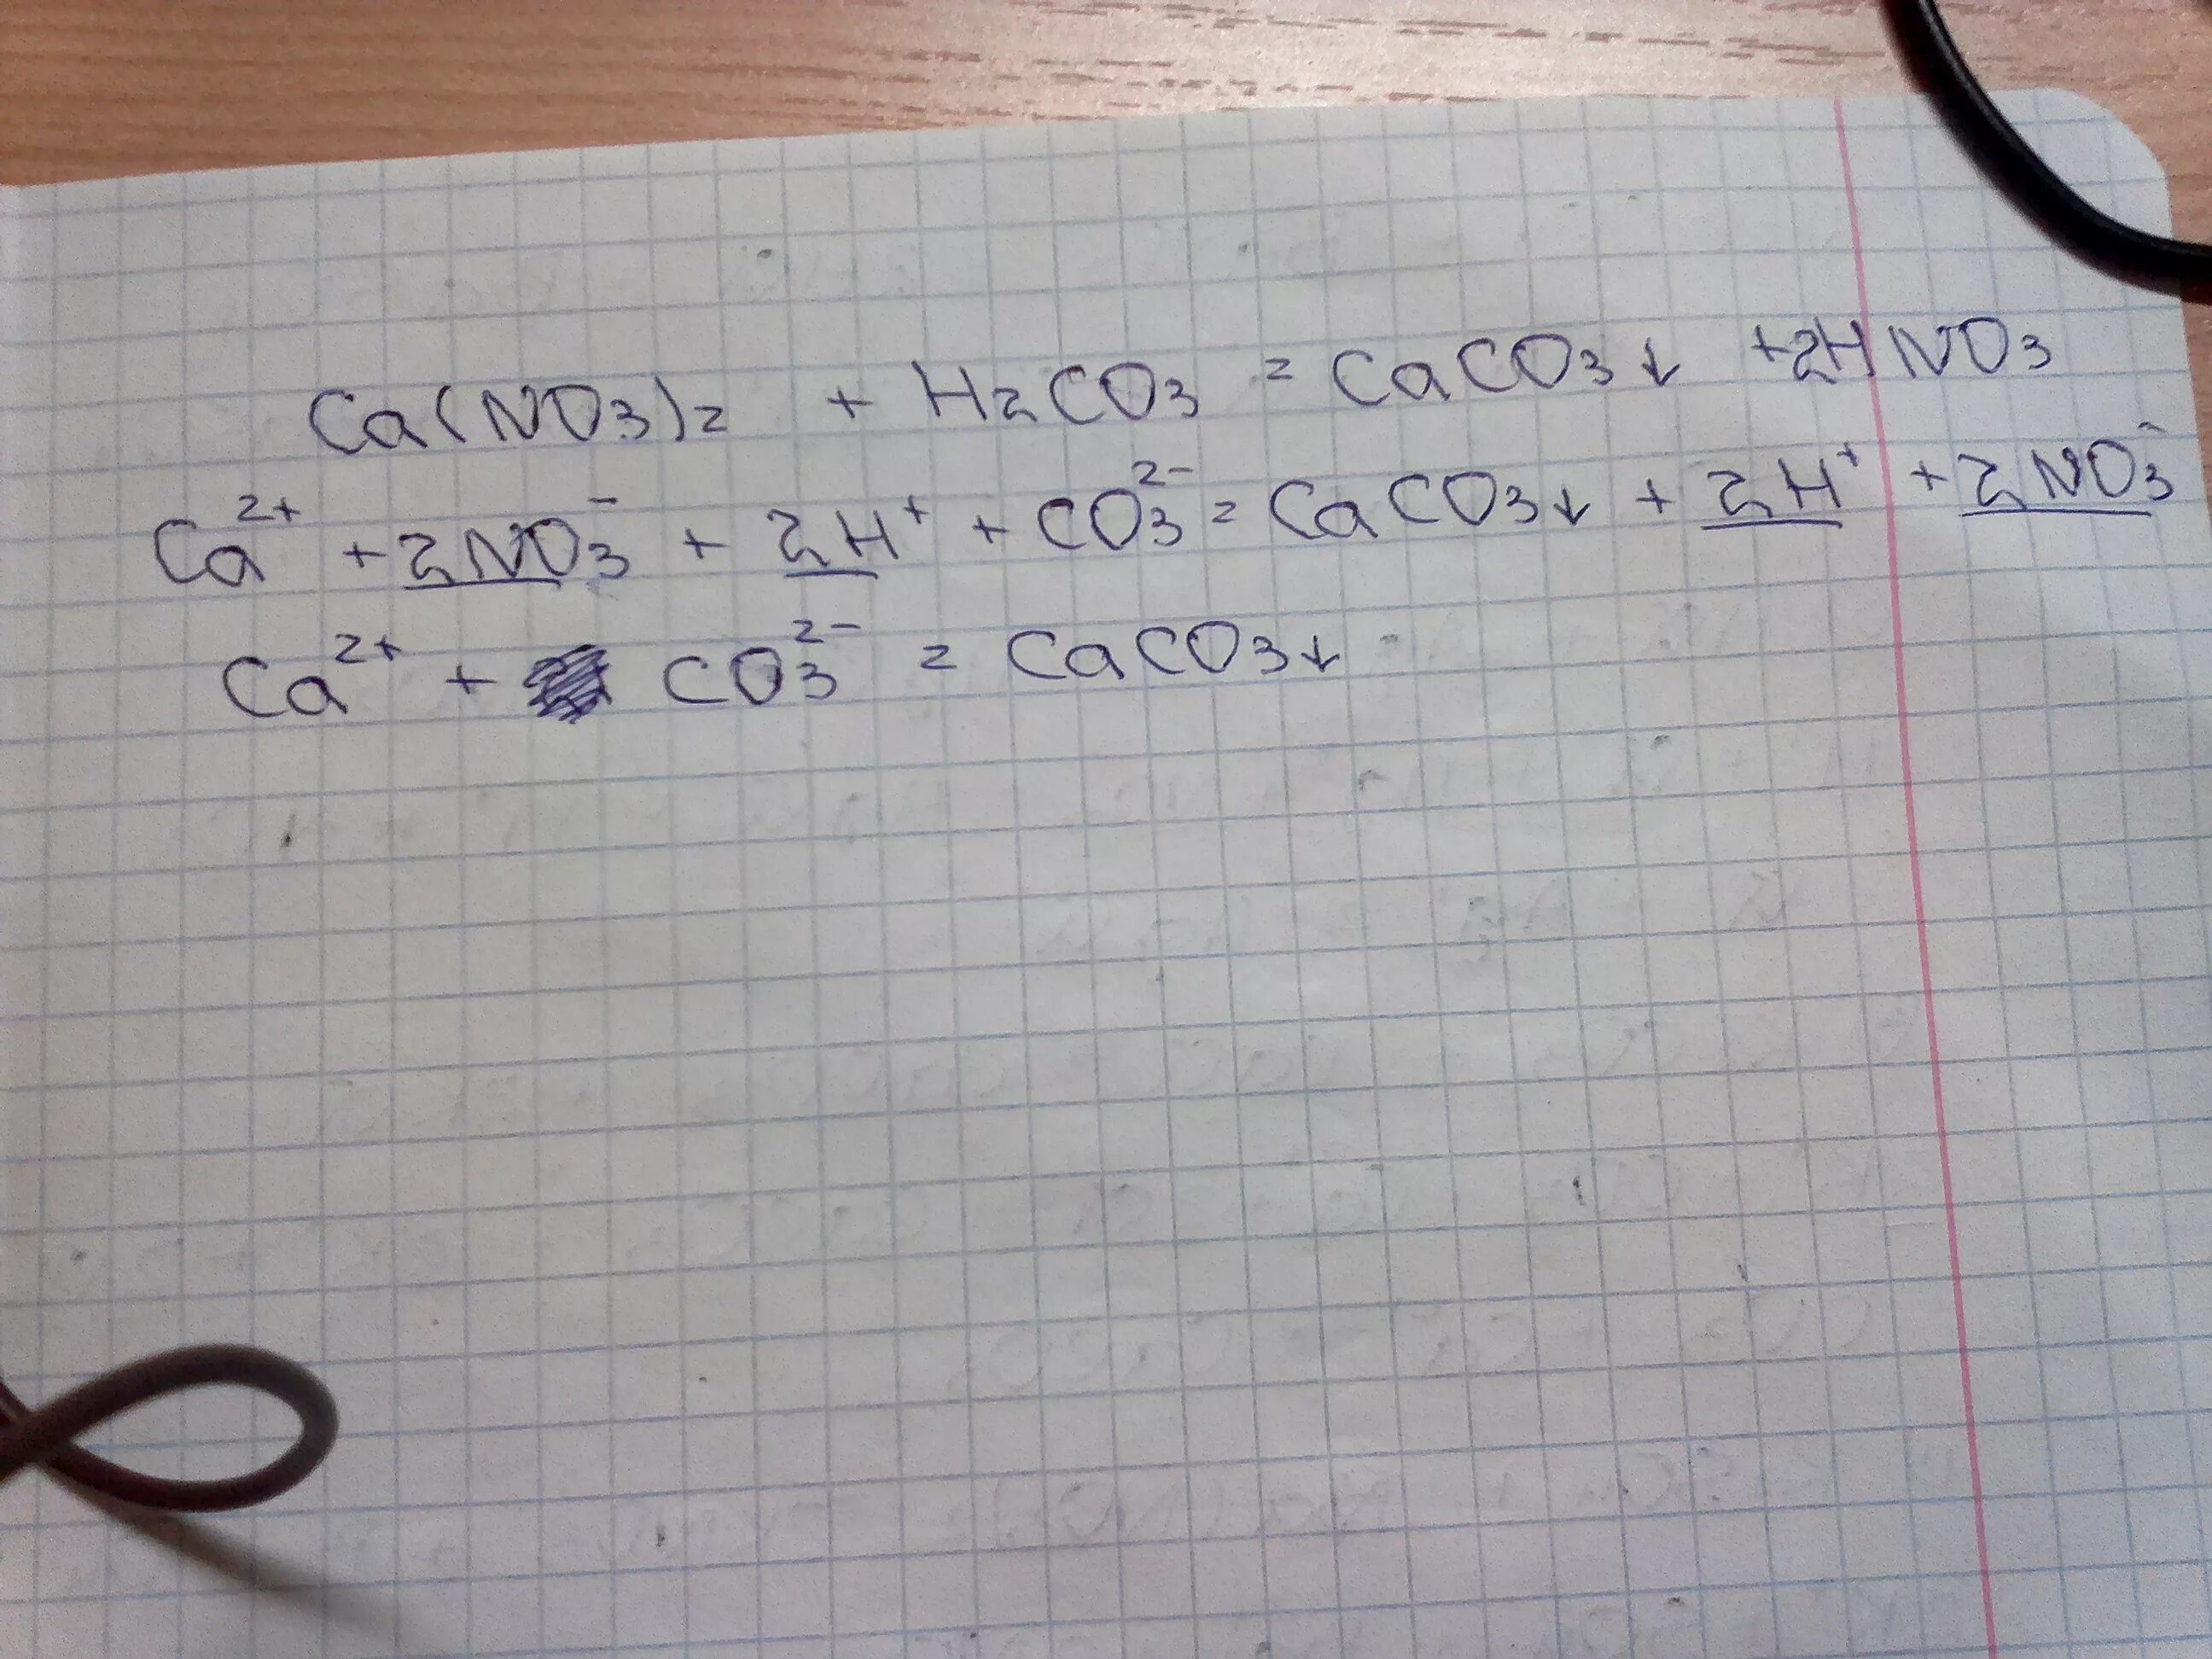 Ca(NO₃)₂ + H₂CO₃ = CaCO₃↓ + 2HNO₃
Ca²⁺ + 2NO₃⁻ + 2H⁺ + CO₃²⁻ = CaCO₃↓ + 2H⁺ + 2NO₃⁻
Ca²⁺ + CO₃²⁻ = CaCO₃↓